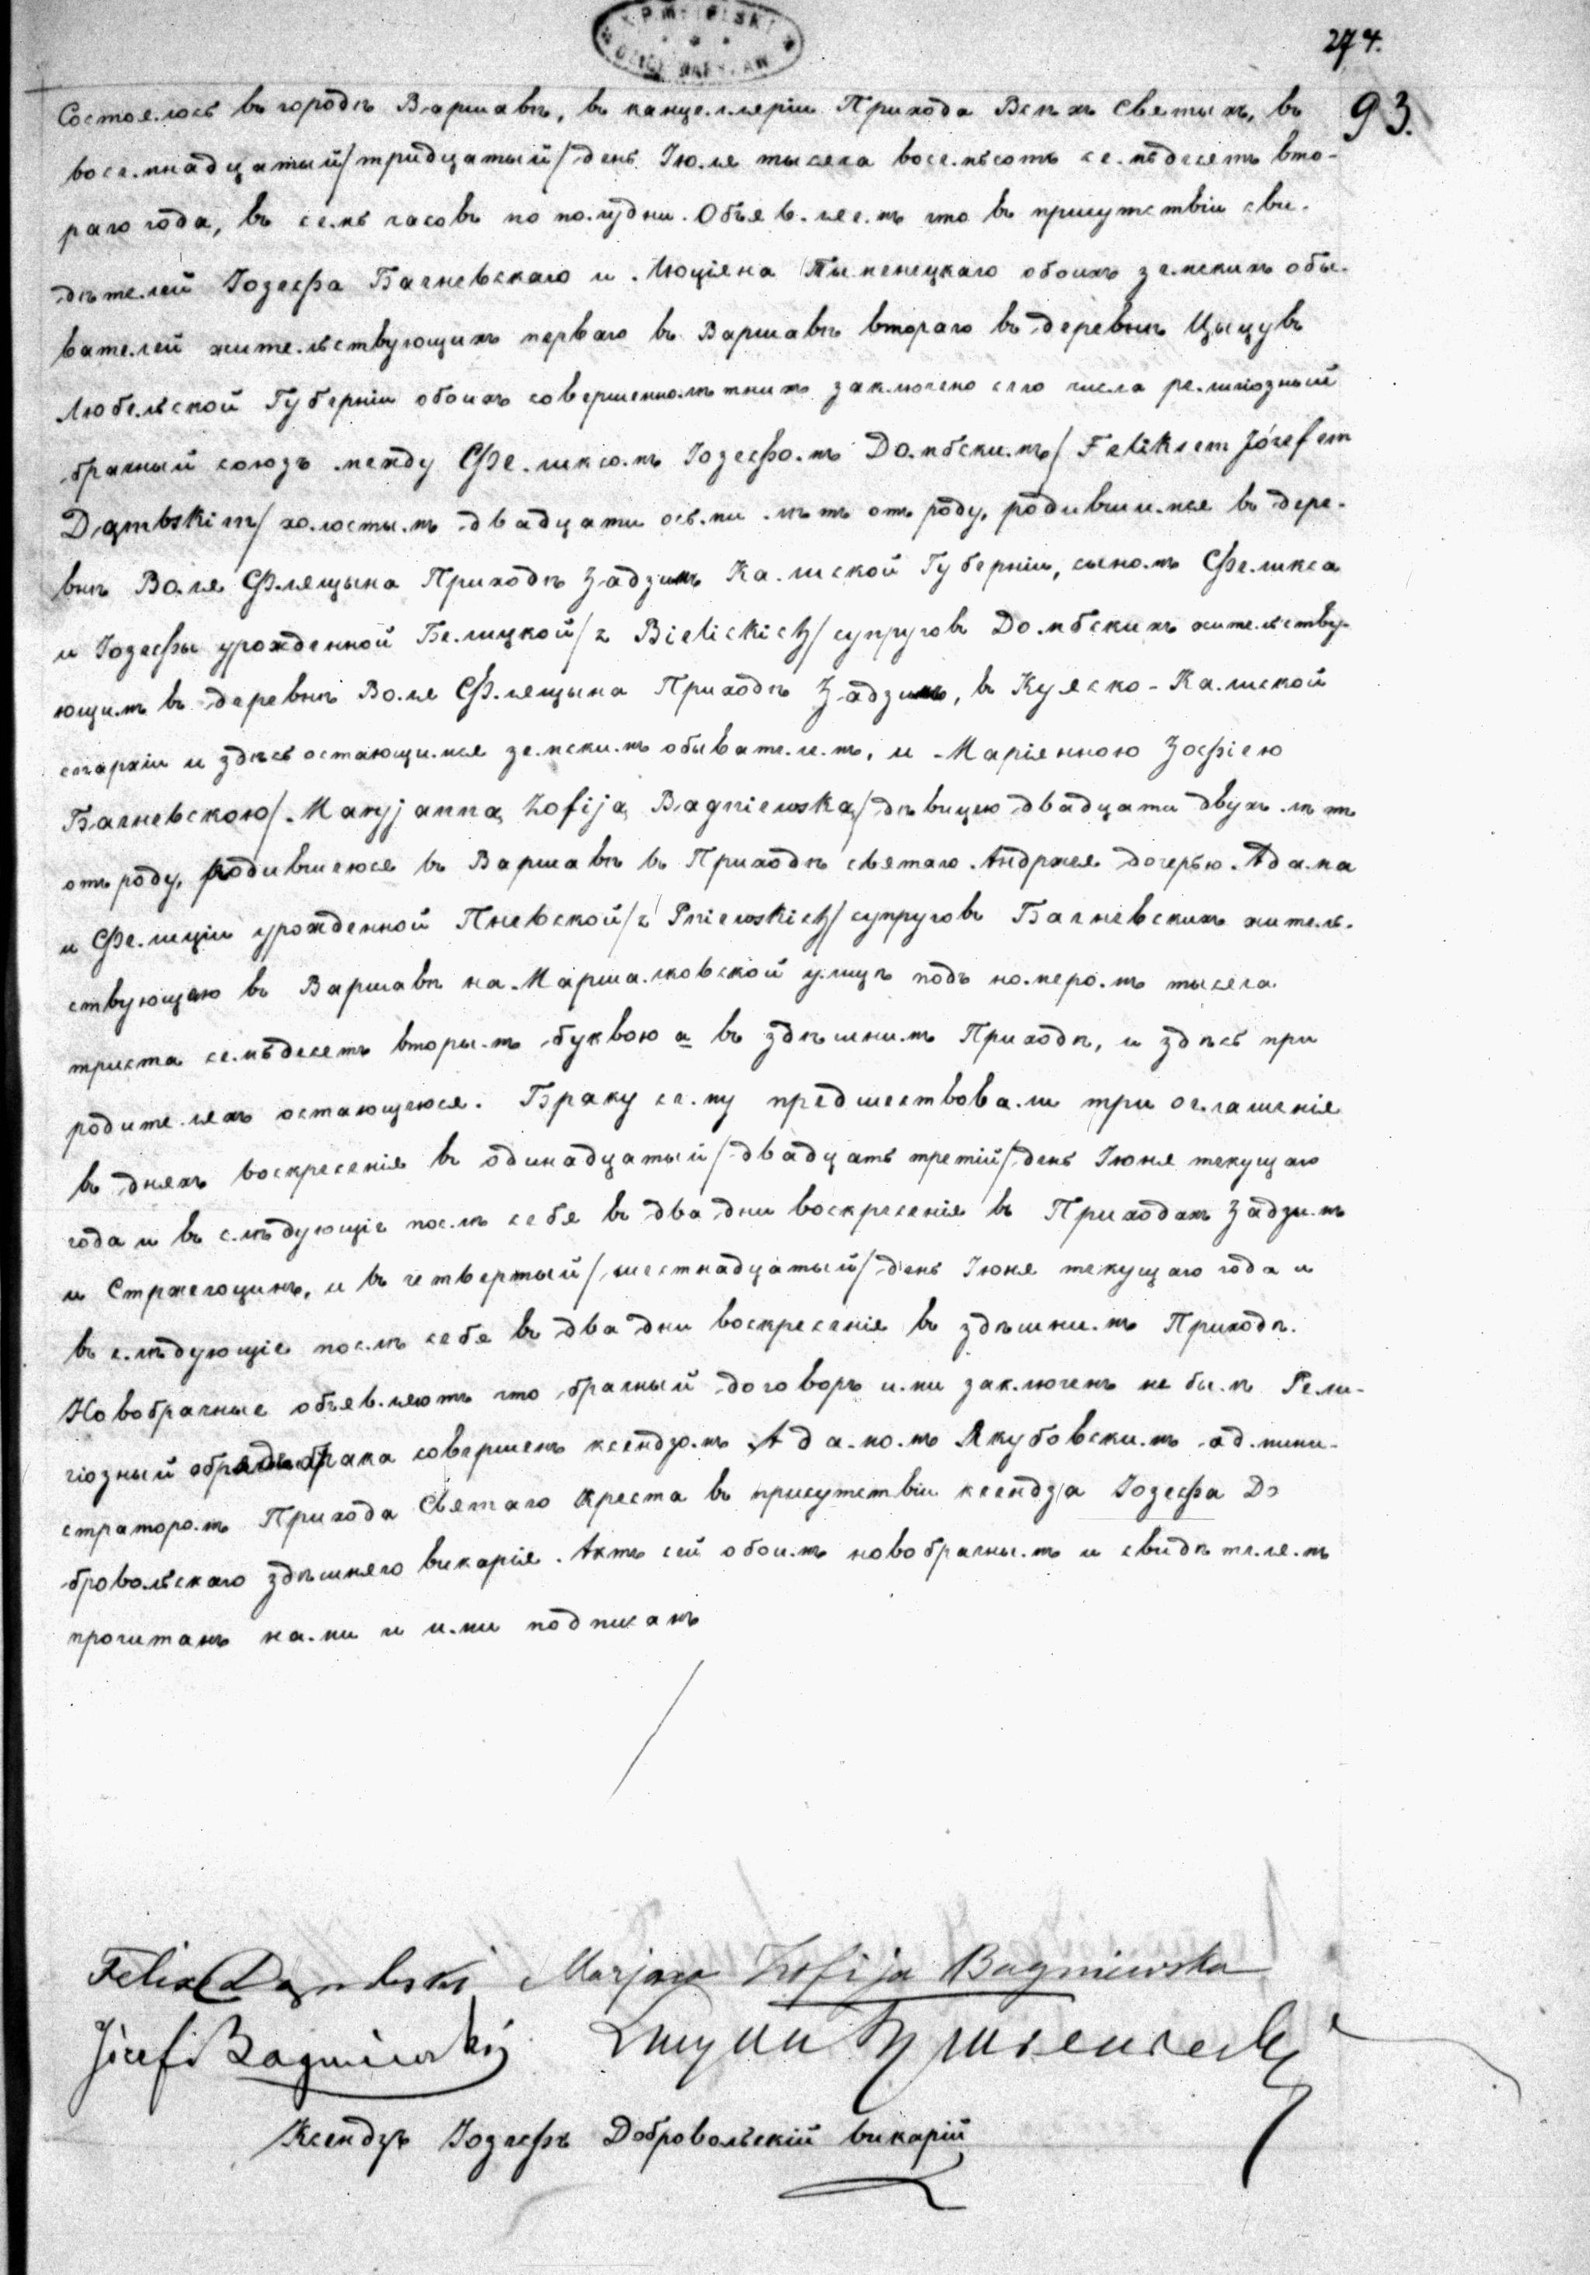 274.
93.
Состоялось въ городѣ Варшавѣ, въ канцелляріи Прихода Всѣхъ Святыхъ, въ
восемнадцатый/тридцатый/день Іюля тысяча восемьсотъ семьдесятъ вто-
раго года, въ семь часовъ по полудни. Объявляемъ что въ присутствіи сви-
дѣтелей Іозефа Багневскаго и Люціяна обоихъ земскихъ обы-
вателей жительствующихъ перваго въ Варшавѣ втораго въ деревнѣ Цыцувъ
Любельской Губерніи обоихъ совершеннолѣтнихъ заключено сего числа религіозный
брачный союзъ между Феликсомъ Іозефомъ Домбскимъ/Feliksem Józefem
Dąmbskim/холостымъ двадцати осьми лѣтъ отъ роду, родившимся въ дере-
внѣ Воля Флящына Приходѣ Задзимъ Калиской Губерніи, сыномъ Феликса
и Іозефы урожденной Белицкой/z Bielickich/супруговъ Домбскихъ жительству-
ющимъ въ деревнѣ Воля Флящына Приходѣ Задзимъ, въ Куяско-Калиской
епархіи и здѣсь остающимся земскимъ обывателемъ, и Маріянною Зофіею
Багневскою/Maryjanną Zofiją Bagniewską/дѣвицею двадцати двухъ лѣтъ
отъ роду, родившеюся въ Варшавѣ въ Приходѣ святаго Андржея дочерью Адама
и Фелиціи урожденной Пневской/z Pniewskich/супруговъ Багневскихъ житель-
ствующею въ Варшавѣ на Маршалковской улицѣ подъ номеромъ тысяча
триста семьдесятъ вторымъ буквою а въ здѣшнимъ Приходѣ, и здѣсь при
родителяхъ остающеюся. Браку сему предшествовали три оглашенія
въ дняхъ воскресенія въ одинадцатый/двадцать третій/день Іюня текущаго
года и въ слѣдующіе послѣ себя въ два дни воскресенія въ Приходахъ Задзимъ
и Стржегоцинъ, и въ четвертый/шестнадцатый/день Іюня текущаго года и
въ слѣдующіе послѣ себя въ два дни воскресенія въ здѣшнимъ Приходѣ.
Новобрачные объявляютъ что брачный договоръ ими заключенъ не былъ Рели-
гіозный обрядъ брака совершенъ ксендзомъ Адамомъ Якубовскимъ админи-
страторомъ Прихода Святаго Креста въ присутствіи ксендза Іозефа До
бровольскаго здѣшняго викарія. Актъ сей обоимъ новобрачнымъ и свидѣтелямъ
прочитанъ нами и ими подписанъ
Felix Dąmbski Marjana Zofija Bagniewska
Józef Bagniewski
Ксендзъ Іозефъ Добровольскій викарій